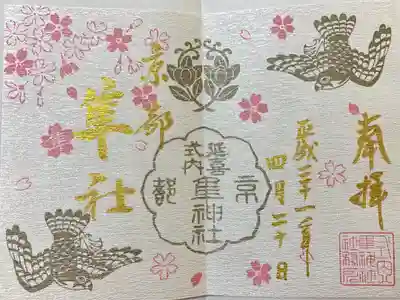 奉拝
平成三十一年
四月二十日
京都
隼社
延喜
式内
隼神社
京都